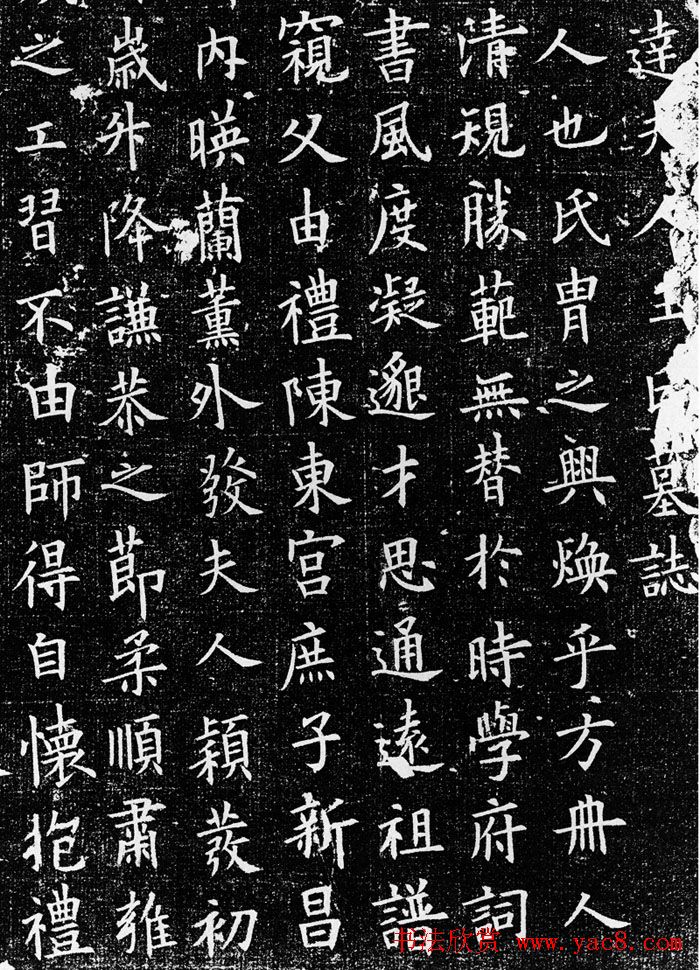 達夫人王墓誌
人也氏胄之興煥乎方冊人
清規勝範無替於時學府詞
書風度凝邈才思通遠祖諶
窺父由禮陳東宮庶子新昌
内暎蘭薰外發夫人穎發初
歲升降謙恭之節柔順肅雍
之工習不由師得自懷抱禮
书法欣赏 www.yac8.com